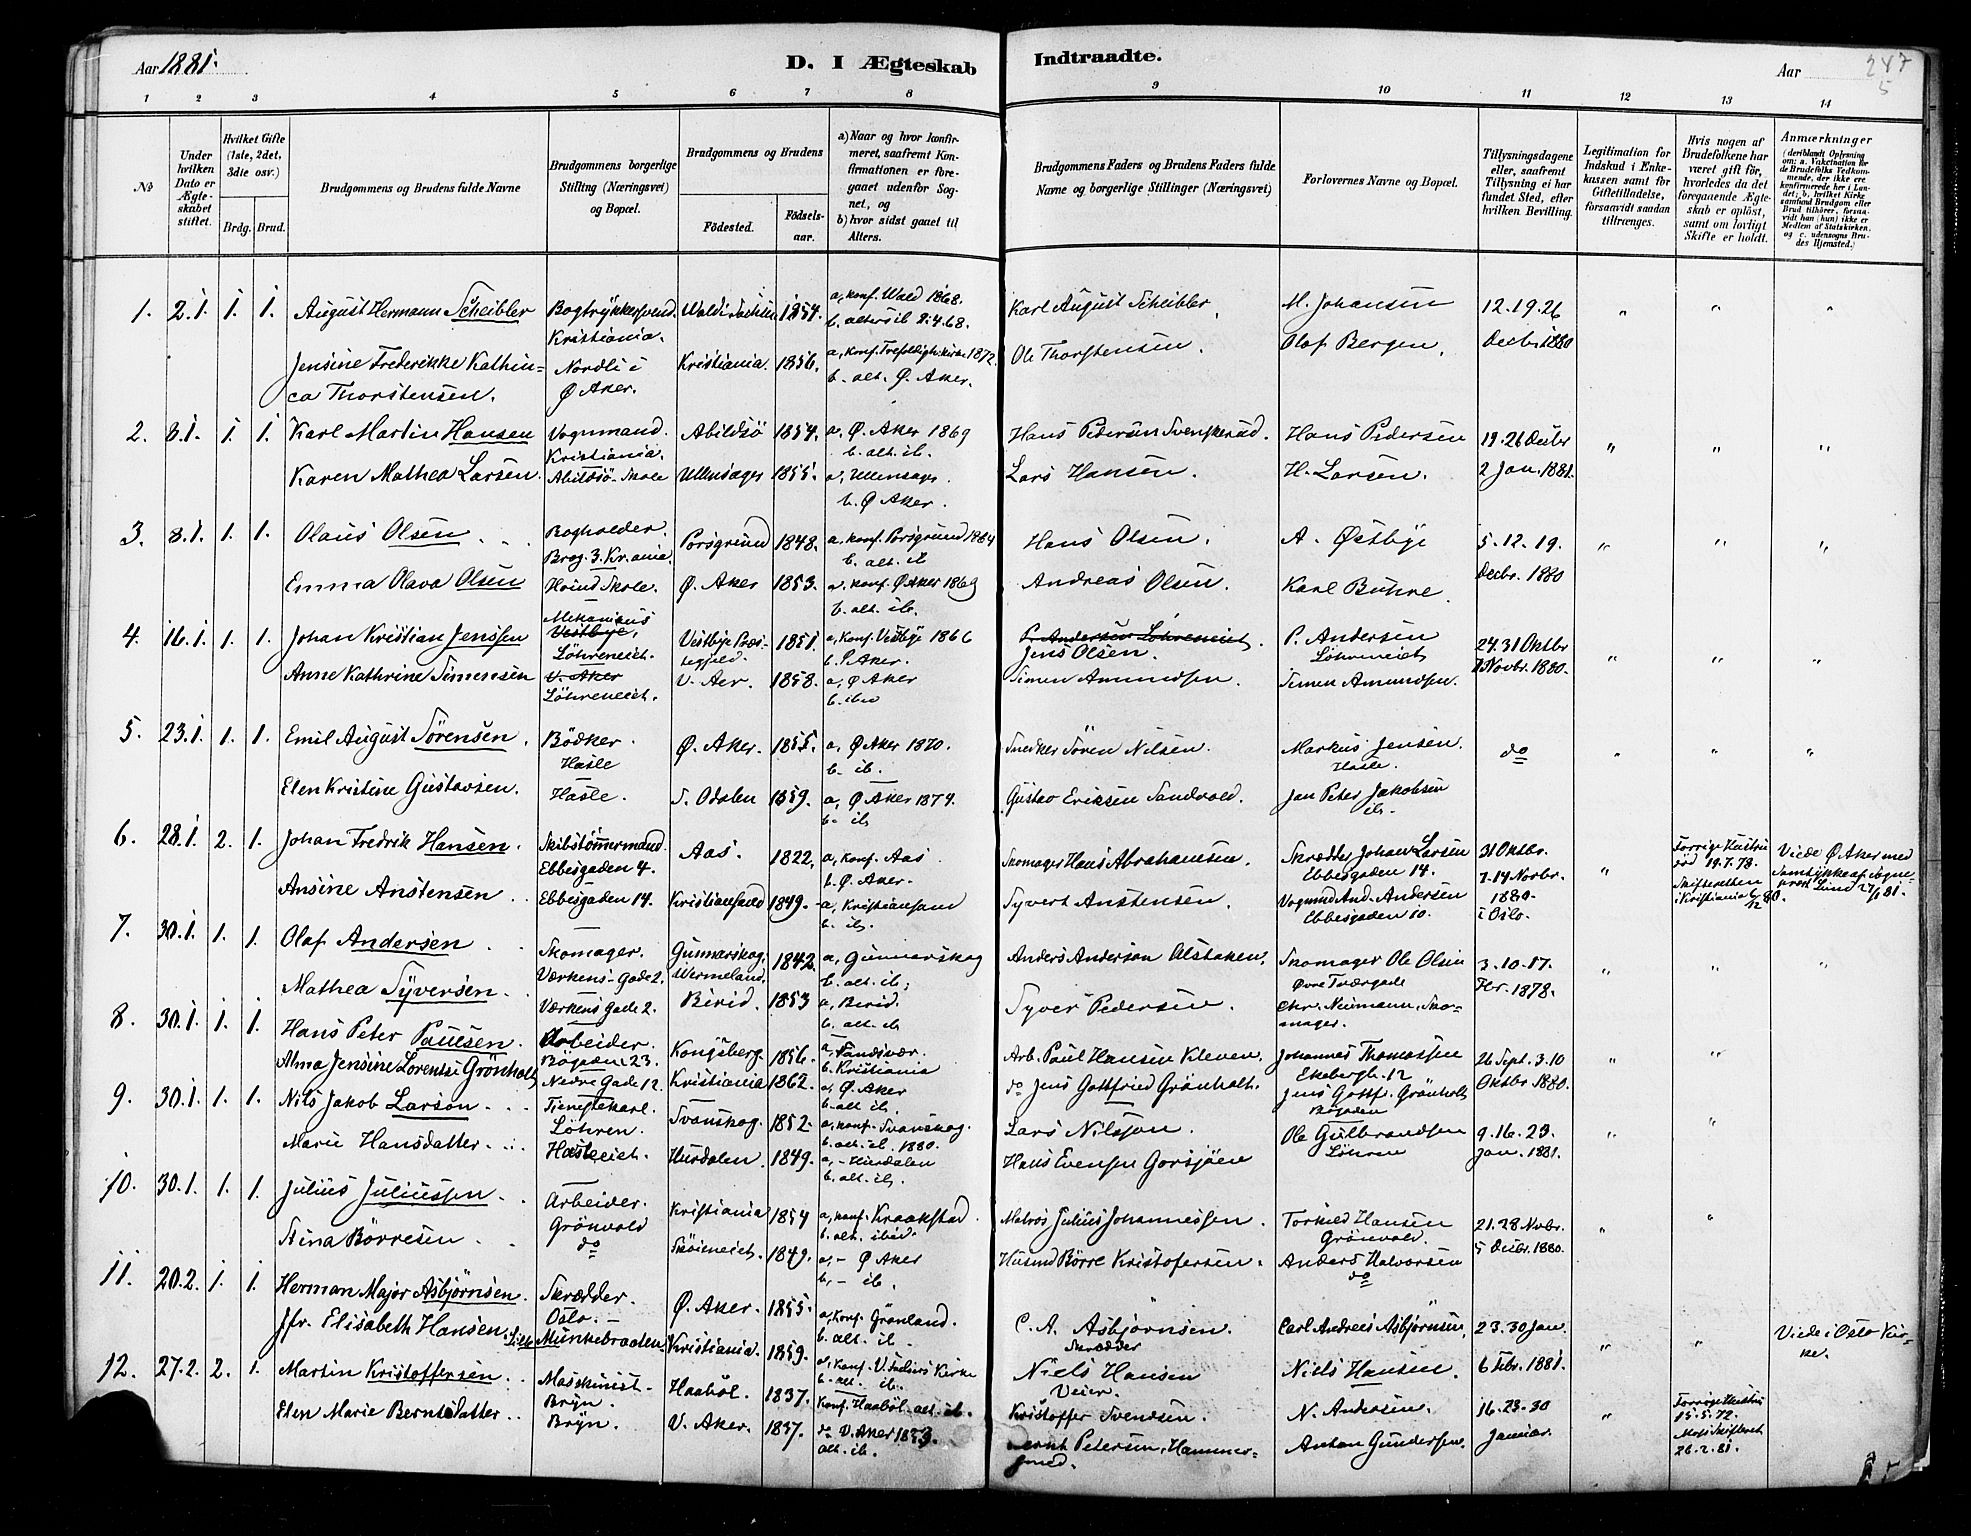 Aar 1881. D. I Ægteskab Indtraadte. Aar 247
5
1 2 3 4 5 6 7 8 9 10 11 12 13 14
No
Under hvilken Dato er Ægteskabet stiftet.
Hvilket Gifte (1ste, 2det, 3die osv.)
Brdg. Brud.
Brudgommens og Brudens fulde Navne
Brudgommens borgerlige Stilling (Næringsvei) og Bopæl.
Brudgommens og Brudens
Fødested. Fødselsaar.
a) Naar og hvor konfirmeret, saafremt Konfirmationen er foregaaet udenfor Sognet, og
b) hvor sidst gaaet til Alters.
Brudgommens Faders og Brudens Faders fulde Navne og borgerlige Stillinger (Næringsvei)
Forlovernes Navne og Bopæl.
Tillysningsdagene eller, saafremt Tillysning ei har fundet Sted, efter hvilken Bevilling.
Legitimation for Indskud i Enkekassen samt for Giftetilladelse, forsaavidt saadan tiltrænges.
Hvis nogen af Brudefolkene har været gift før, hvorledes da det foregaaende Ægteskab er opløst, samt om lovligt Skifte er holdt.
Anmærkninger
(deriblandt Oplysning om: a. Vakcination for de Brudefolks Vedkommende, der ikke ere konfirmerede her i Landet; b. hvilket Kirkesamfund Brudgom eller Brud tilhører, forsaavidt han (hun) ikke er Medlem af Statskirken. og c. udensogns Brudes Hjemsted.)
1. 2.1. 1. 1. August Hermann Scheibler Bogtrykkersvend. Kristiania. Wald i Sachsen 1854. a, konf. Wald 1868. b. alters ib 2.4.68. Karl August Scheibler, M. Johansen 12.19.26 " " "
Jensine Frederikke Kathinca Thorstensen. Nordli i Ø Aker. Kristiania. 1856. a, konf. Trefoldigh. kirke 1872. b. alt. Ø. Aker. Ole Thorstensen. Olaf Bergen, Decbr 1880
2. 8.1. 1. 1. Karl Martin Hansen Vognmand. Kristiania. Abildsö 1854. a, Ø. Aker 1869 b. alt. ib. Hans Pedersen Svenskerud. Hans Pedersen 19.26 Decbr " " "
Karen Mathea Larsen. Abildsö Skole Ullensager 1855. a, Ullensager. b. Ø Aker. Lars Hansen. H. Larsen. 2 Jan. 1881.
3. 8.1. 1. 1. Olaus Olsen Bogholder. Brog. 3. Kr.ania. Porsgrund 1848. a. konf. Porsgrund 1864 b. alt. ib Hans Olsen. A. Østbye 5.12.19. " " "
Emma Olava Olsen Hovind Skole. Ø. Aker 1853. a. konf. Ø Aker 1869 b. alt. ib. Andreas Olsen. Karl Buhre. Decbr. 1880
4. 16.1. 1. 1. Johan Kristian Jenssen Mekanicus Vestbye, Löhreneiet. Vestbye Præstegjeld. 1851. a, konf. Vestbye 1866 b. Ø. Aker. P. Andersen Löhreneiet. Jens Olsen. P. Andersen Löhreneiet 24.31 Oktbr " " "
Anne Kathrine Simensen V. Aker Löhreneiet. V. Aer. 1858. a, Ø Aker b. ibid Simen Amundsen. Simen Amundsen. 7 Novbr. 1880.
5. 23.1. 1. 1. Emil August Sörensen. Bödker. Hasle Ø. Aker. 1855. a, Ø Aker 1870. b. ib. Snedker Sören Nilsen. Markus Jensen. Hasle. do " " "
Elen Kristine Gustavsen. Hasle. S. Odalen 1859. a, Ø Aker 1874. b. ib Gustav Eriksen Sandvold. Jan Peter Jakobsen ib.
6. 28.1. 2. 1. Johan Fredrik Hansen. Skibstömmermand. Ebbesgaden 4. Aas. 1822. a, konf. Aas. b. Ø. Aker. Skomager Hans Abrahamsen. Skrædder Johan Larsen Ebbesgaden 14. 31 Oktbr. 7.14 Novbr. " Forrige Hustru död 19.7.78. Viede Ø Aker med Samtykke af Sogneprest Lind 27/1 81.
Ansine Anstensen Ebbesgaden 14. Kristiansand 1849. a, Kristiansand b. ib. Syvert Anstensen. Vognmd And. Andersen Ebbesgaden 10. 1880. i Oslo. Skifteretten i Kristiania 6/12 80.
7. 30.1. 1. 1. Olaf Andersen Skomager. Værkens Gade 2. Gunnarskog. Wermeland. 1842. a, Gunnarskog b. alt. ib; Anders Anderson Alstaken. Skomager Ole Olsen Övre Tværgade 3.10.17. " " "
Mathea Syversen Værkens Gade 2. Birid. 1853 a, Birid. b. alt. ib Syver Pedersen. Chr. Neumann, Skomager. Fbr. 1878.
8. 30.1. 1. 1. Hans Peter Paulsen. Arbeider. Bögaden 23. Kongsberg. 1856. a, Sandsvær. b. Kristiania Arb. Paul Hansen Kleven. Johannes Thomassen Ekebergb. 12 26 Sept. 3.10 " "
Alma Jensine Lorentse Grönholt Nedre Gade 12. Kristiania 1862. a, Ø. Aker b. alt ib. do Jens Gottfried Grönholt. Jens Gottfr. Grönholt Bögaden Oktbr 1880.
9. 30.1. 1. 1. Nils Jakob Larson. Tjenestekarl. Löhren. Svanskog. 1852. a, konf. Svanskog. b. alt. ib. 1880. Lars Nilsson. Ole Gulbrandsen Löhren 9.16.23. " "
Marie Hansdatter Hasleeiet. Hurdalen 1849. a, - Hurdalen b. alt. ib. Hans Evensen Gorsjöen Jan. 1881.
10. 30.1. 1. 1. Julius Juliussen Arbeider. Grönvold Kristiania 1854 a, konf. Kraakstad. b. alt. ibid. Matros Julius Johannessen. Torkild Hansen Grönvold. 21.28 Novbr. " "
Stina Börresen do Sköieneiet. 1849. a, - Ø Aker b, - ib. Husmd Börre Kristofersen. Anders Halvorsen do 5 Decbr. 1880.
11. 20.2. 1. 1. Herman Major Asbjørnsen. Skrædder. Oslo. Ø. Aker. 1855. a, konf. Grønland. b. alt. ib C. A. Asbjørnsen. Skrædder Carl Andreas Asbjørnsen, 23.30 Jan. " " Viede i Oslo Kirke.
Jfr. Elisabeth Hansen. Munkebraaten. Kristiania. 1859. a, konf. V. Jacobs Kirke b. alt. ib. Niels Hansen Veier. Niels Hansen. 6 Febr. 1881.
12. 27.2. 2. 1. Martin Kristoffersen. Maskinist. Bryn. Haaböl. 1837. Konf. Haaböl alt. ib. Kristoffer Svendsen. N. Andersen. 16.23.30 " Forrige Hustru 15.5.72.
Elen Marie Berntsdatter Bryn. V. Aker. 1837. do V. Aker 1853. alt. ib. Bernt Petersen, Hammersmed. Anton Gundersen. Januar. Moss Skifteret 26.2.81.